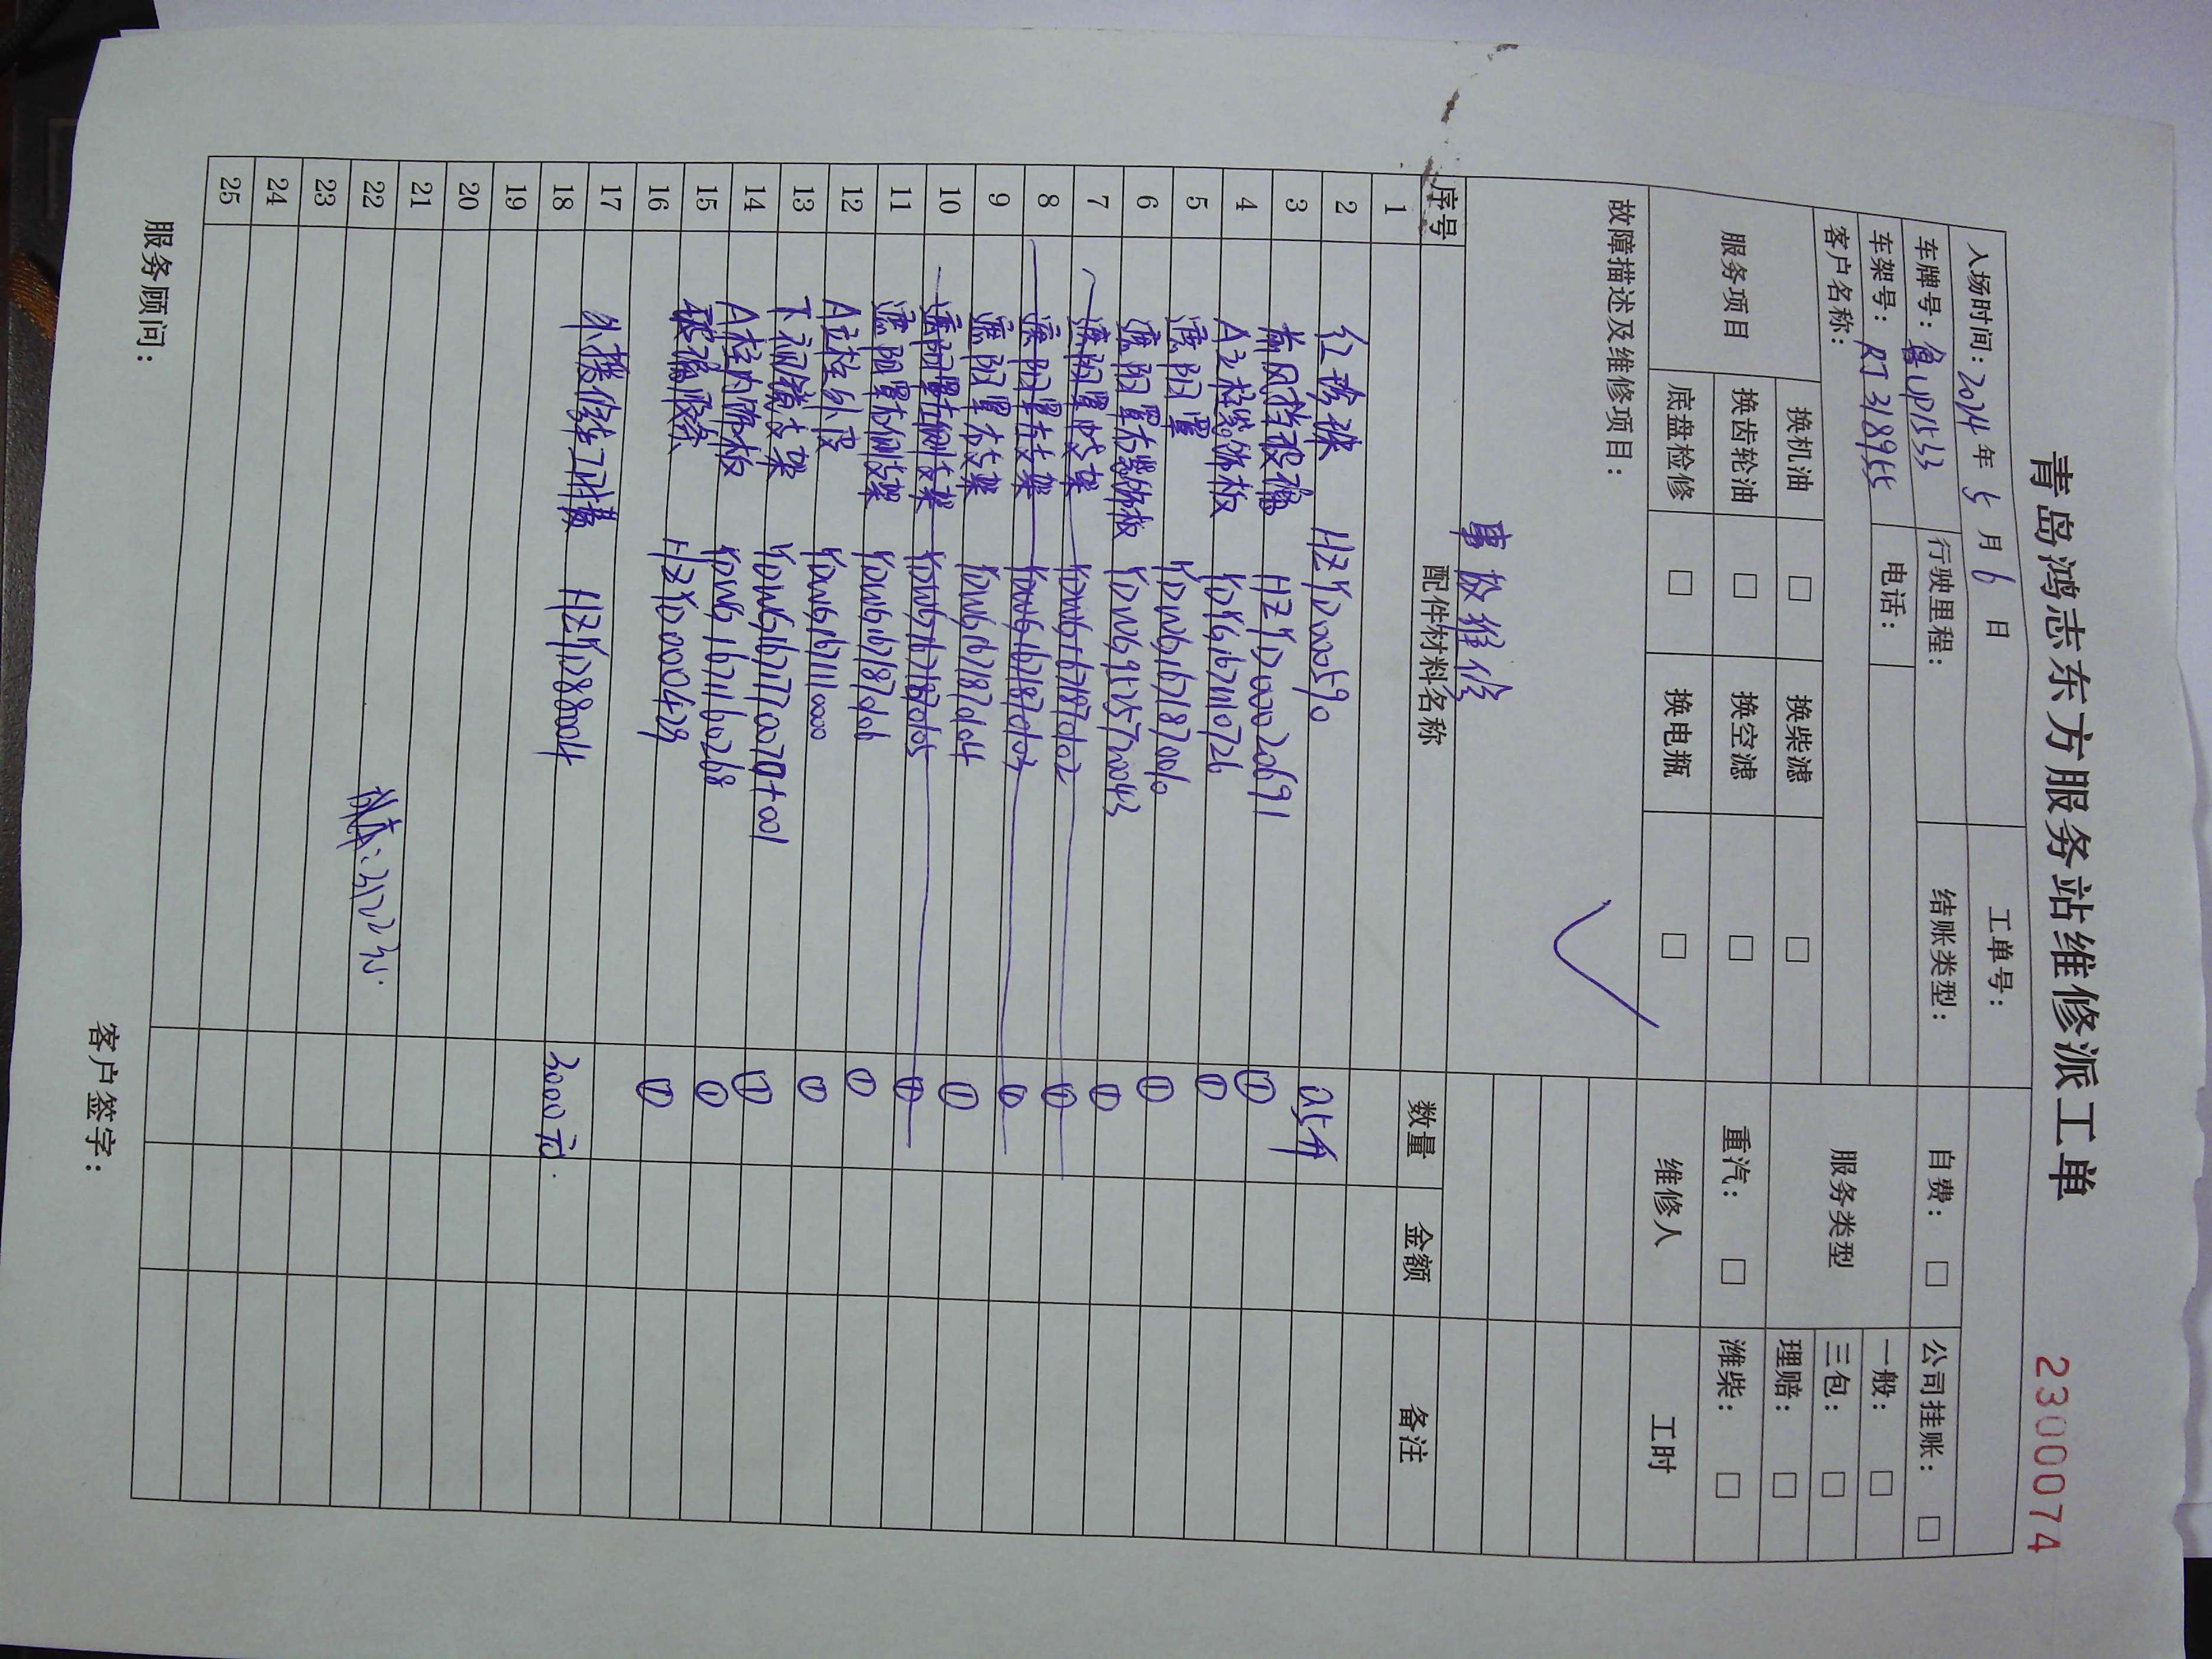 青岛鸿志东方服务站维修派工单 2300074
入场时间：2014年5月6日 工单号：
车牌号：鲁UP1533 行驶里程： 结账类型： 自费：□ 公司挂账：□
车架号：RJ318955 电话： 服务类型 一般：□
客户名称： 三包：□
服务项目 换机油 □ 换柴滤 □ 理赔：□
换齿轮油 □ 换空滤 □ 重汽：□ 潍柴：□
底盘检修 □ 换电瓶 □ 维修人 工时
故障描述及维修项目：
事故维修
序号 配件材料名称 数量 金额 备注
1
2 红珍珠 HZYD000590 0.5斤
3 前风挡玻璃 HZYD00020691 ①
4 A立柱装饰板 ①
5 遮阳罩 YDWG1671870010 ①
6 遮阳罩右装饰板 ①
7 遮阳罩中支架 YDWG1671870102 ①
8 遮阳罩右支架 YDWG1671870103 ①
9 遮阳罩左支架 YDWG1671870104 ①
10 遮阳罩左侧支架 YDWG1671870105 ①
11 遮阳罩右侧支架 YDWG1671870106 ①
12 A立柱外皮 ①
13 下视镜支架 YDWG1671770070+001 ①
14 A柱内饰板 YDWG1671160268 ①
15 玻璃胶条 HZYD000429 ①
16
17 外接修车工时费 HZYD288004 3000元.
18
19
20
21
22
23
24
25
服务顾问： 客户签字：